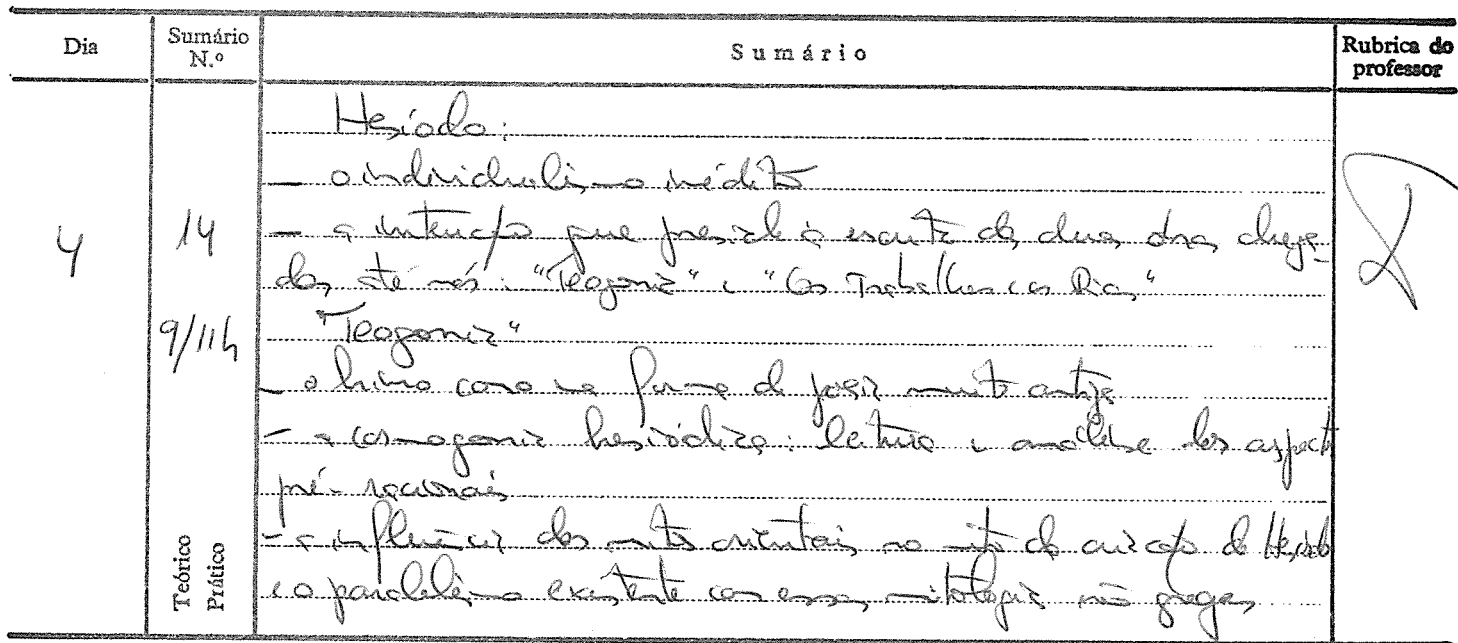 Dia
Sumário N.º
Sumário
Rubrica do professor
4
14
9/11h
Teórico
Prático
Hesíodo:
- o individualismo inédito
- a intenção que preside à escrita das duas obras chega-
das até nós: "Teogonia" e "Os Trabalhos e os Dias"
"Teogonia"
- o hino como uma forma de poesia muito antiga
- a cosmogonia hesiódica: leitura e análise dos aspect
pré-racionais
- a influência dos mitos orientais no mito da criação de Hesíodo
e o paralelismo existente com essas mitologias não gregas